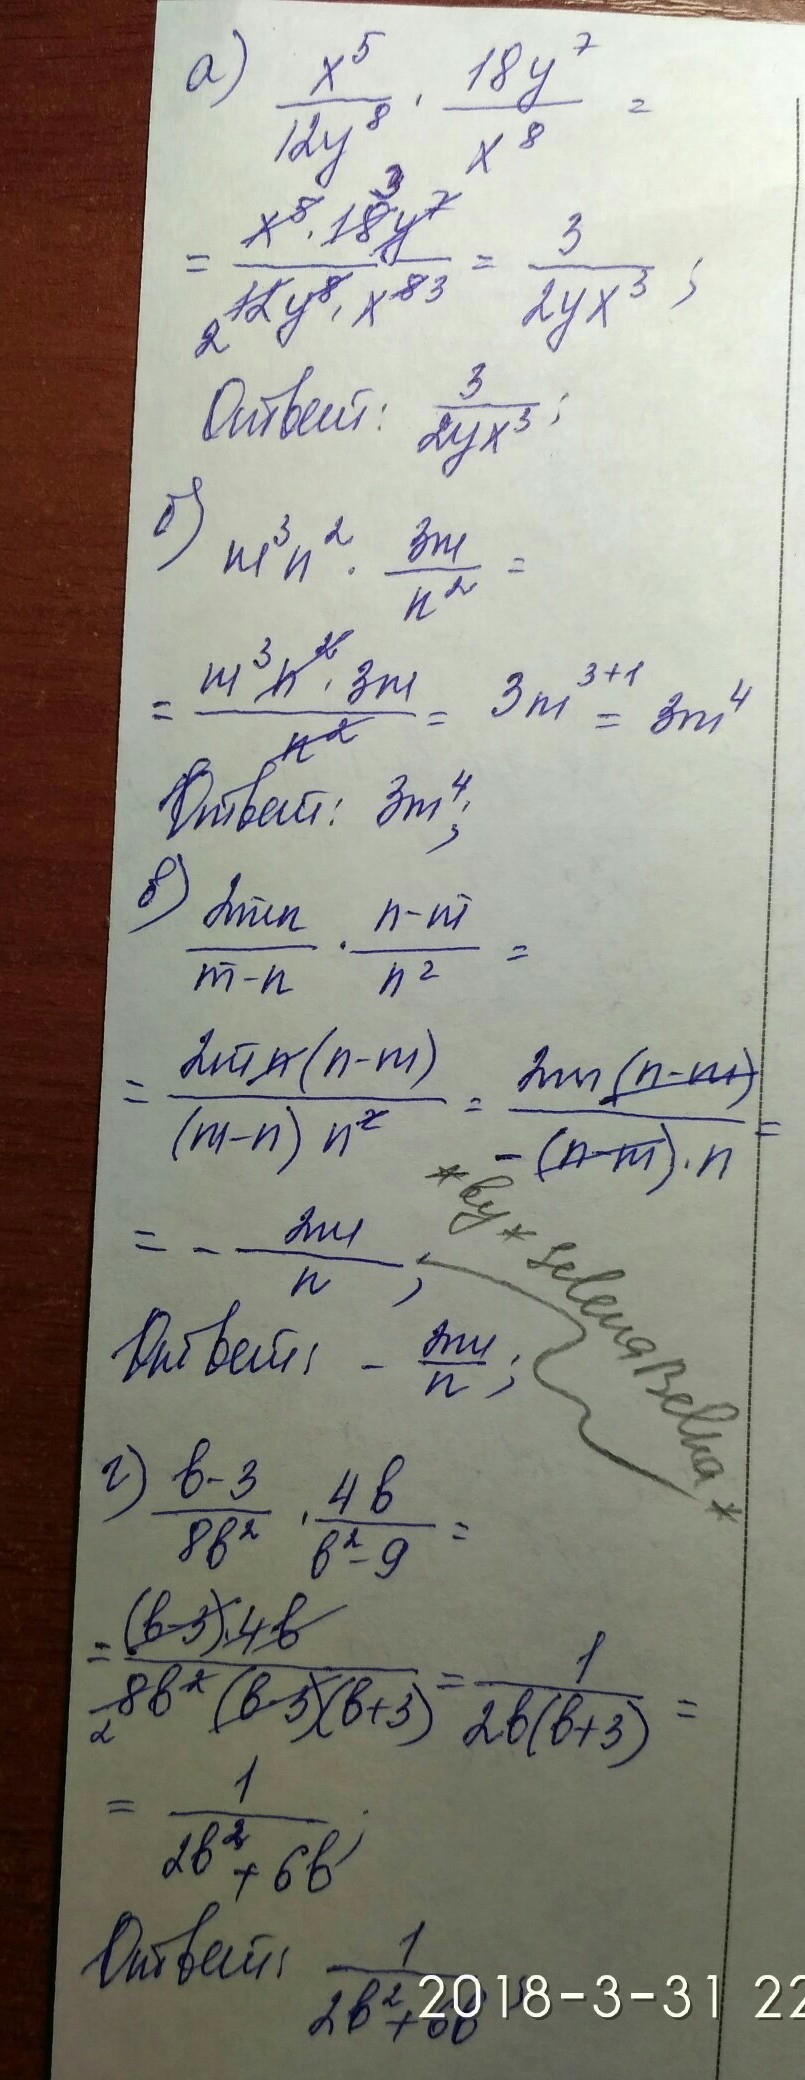 а) x⁵/12y⁸ · 18y⁷/x⁸ =
= x⁵·18³y⁷/₂12y⁸·x⁸³ = 3/2yx³;
Ответ: 3/2yx³;
б) m³n² · 3m/n² =
= m³n²·3m/n² = 3m³⁺¹ = 3m⁴
Ответ: 3m⁴;
в) 2mn/m-n · n-m/n² =
= 2mn(n-m)/(m-n) n² = 2m(n-m)/-(n-m)·n =
= - 2m/n;
Ответ: - 2m/n;
*by*SelenaBelna*
г) b-3/8b² · 4b/b²-9 =
= (b-3)·4b/₂8b²(b-3)(b+3) = 1/2b(b+3) =
= 1/2b²+6b;
Ответ: 1/2b²+6b;
2018-3-31 22